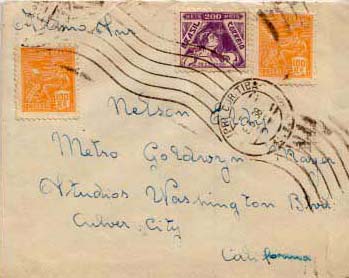 200 REIS
BRASIL CORREIO
Nelson Eddy
Metro Goldwyn Mayer
Studios Washington Blvd.
Culver City
California